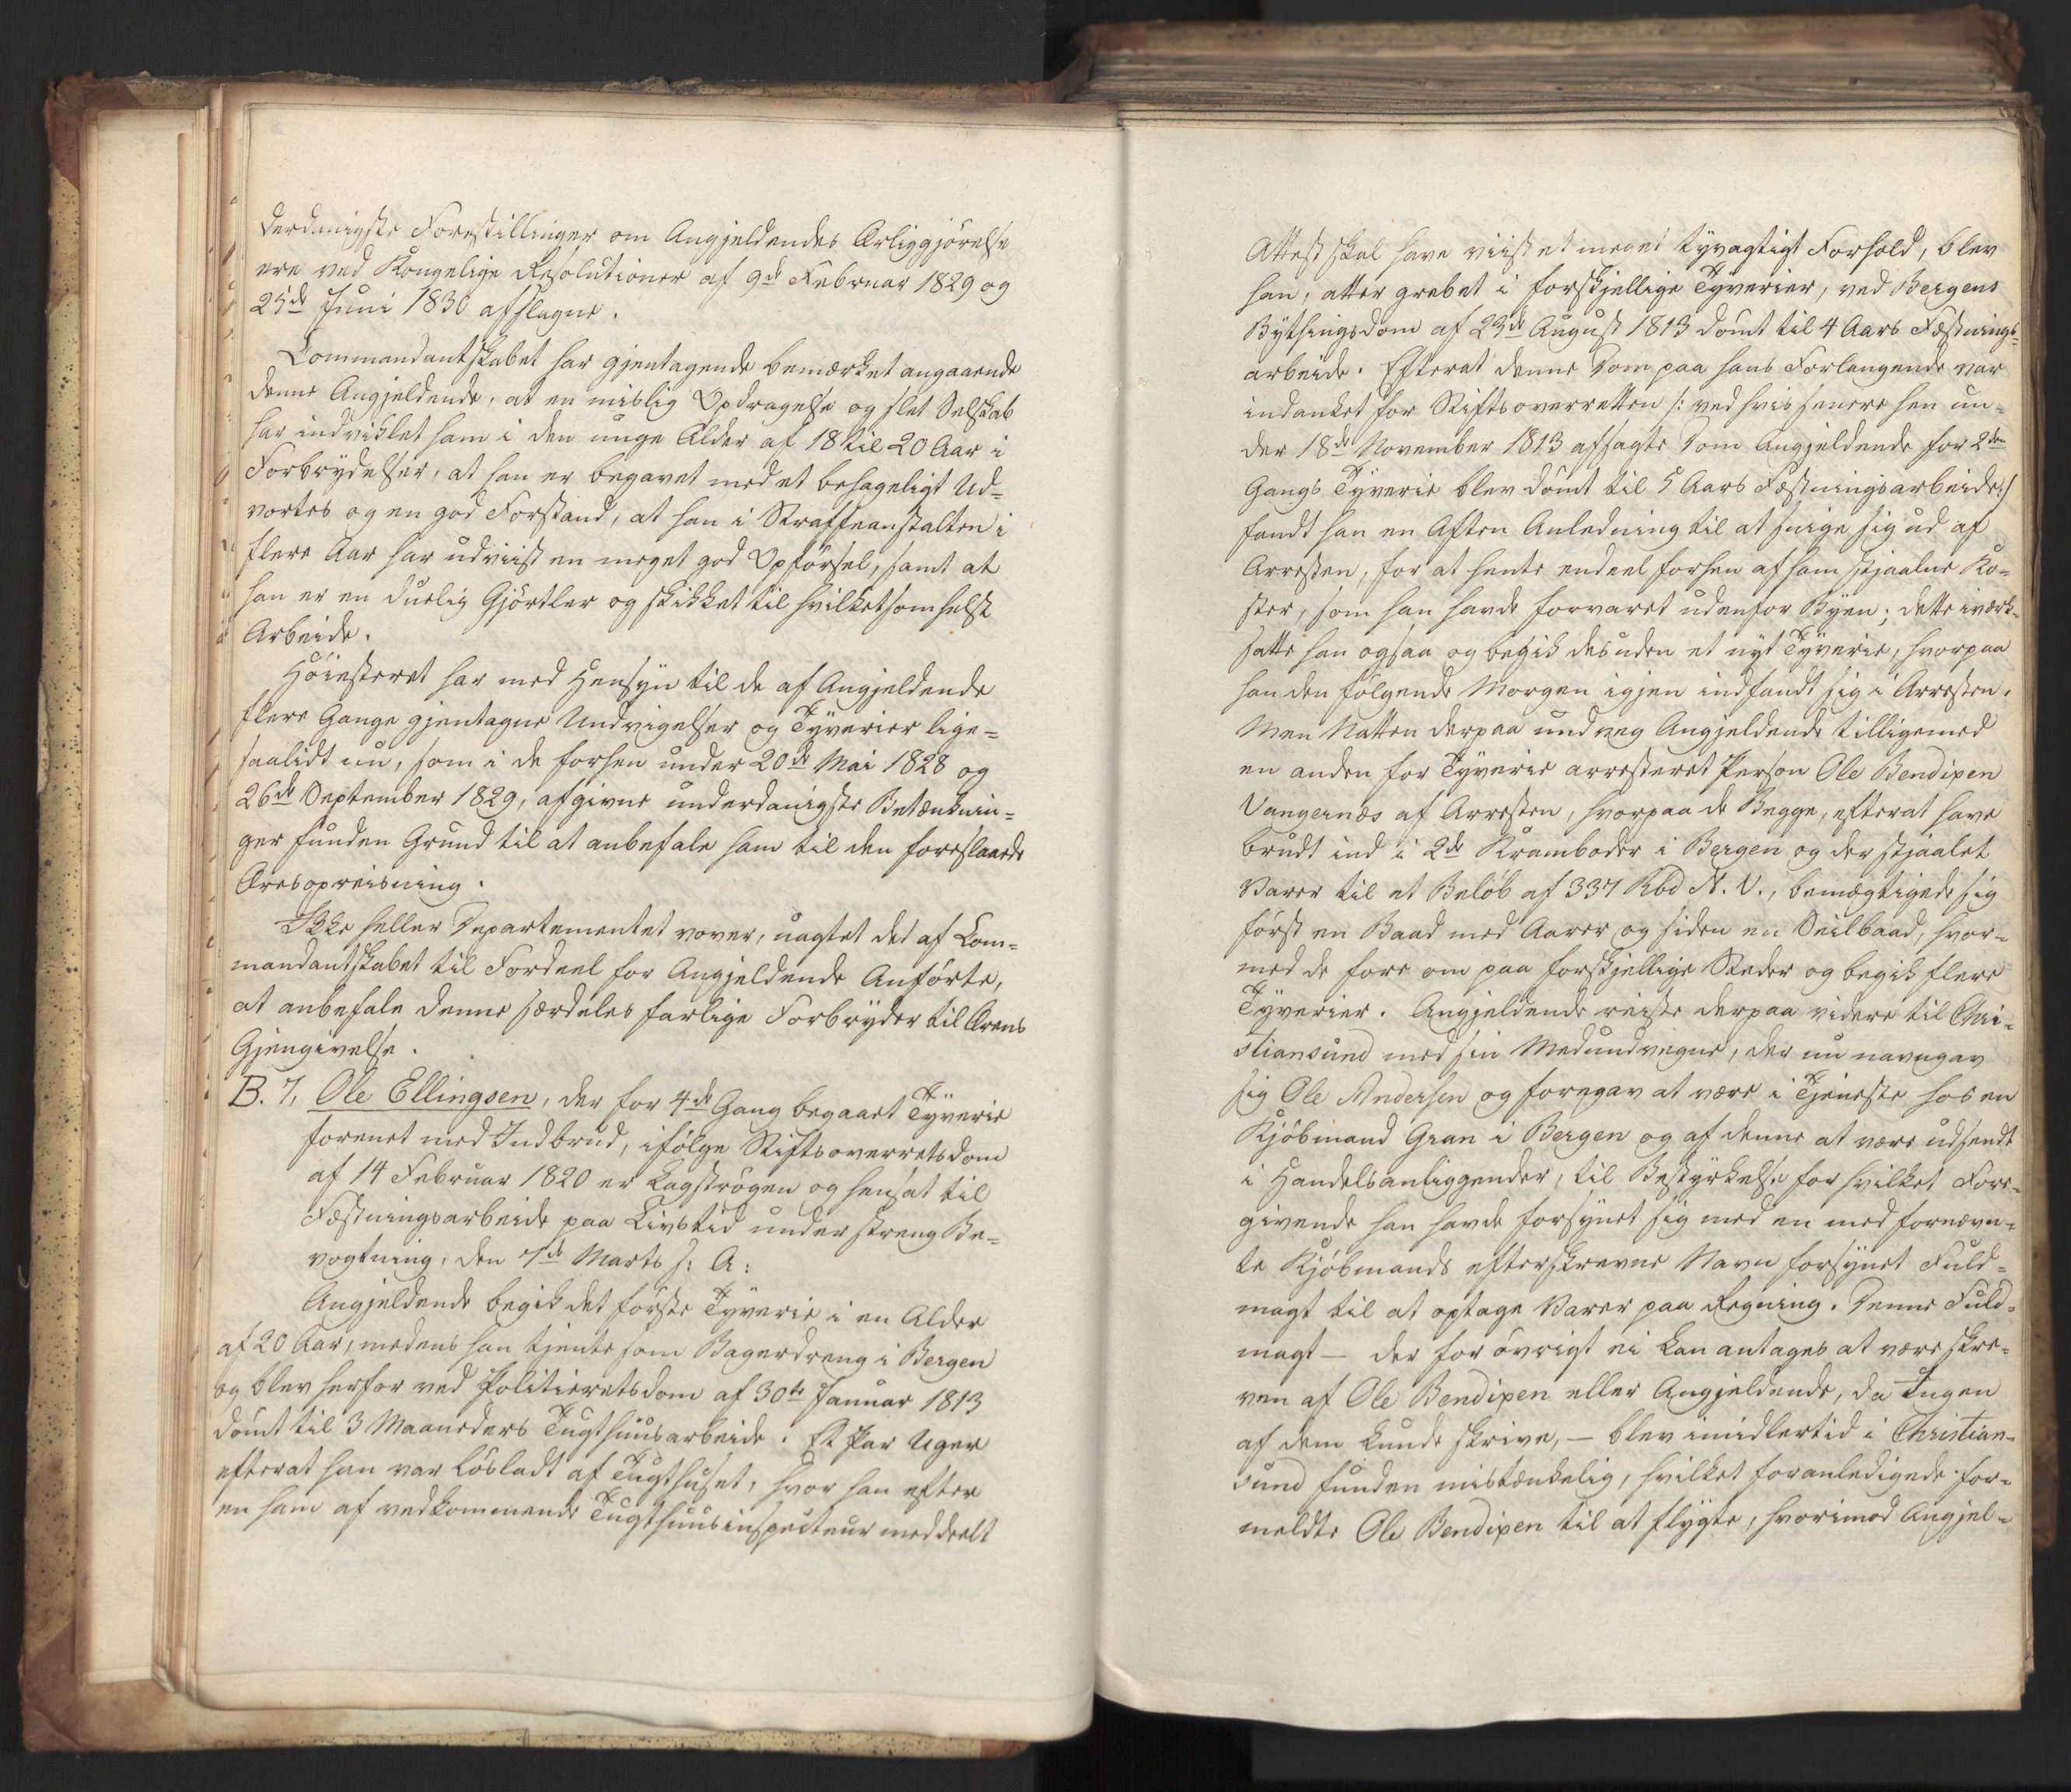 derdanigste Forestillinger om Angjeldendes Ærliggjörelse
ere ved Kongelige Resolutioner af 9de Februar 1829 og
25de Juni 1830 afslagne.
Commandantskabet har gjentagende bemærket angaaende
denne Angjeldende, at en mislig Opdragelse og slet Selskab
har indviklet ham i den unge Alder af 18 til 20 Aar i
Forbrydelser, at han er begavet med et behageligt Ud-
vortes og en god Forstand, at han i Straffeanstalten i
flere Aar har udviist en meget god Opförsel, samt at
han er en duelig Gjörtler og skikket til hvilketsomhelst
Arbeide.
Höiesteret har med Hensyn til de af Angjeldende
flere Gange gjentagne Undvigelser og Tyverier lige-
saalidt nu, som i de forhen under 20de Mai 1828 og
26de September 1829, afgivne underdanigste Betænknin-
ger funden Grund til at anbefale ham til den foreslaaede
Æresopreisning.
Ikke heller Departementet vover, uagtet det af Com-
mandantskabet til Fordeel for Angjeldende Anförte,
at anbefale denne særdeles farlige Forbryder til Ærens
Gjengivelse.
B. 7, Ole Ellingsen, der for 4de Gang begaaet Tyverie
forenet med Indbrud, ifölge Stiftsoverretsdom
af 14 Februar 1820 er kagströgen og hensat til
Fæstningsarbeide paa Livstid under streng Be-
vogtning, den 7de Marts s: A:
Angjeldende begik det förste Tyverie i en Alder
af 20 Aar, medens han tjente som Bagerdreng i Bergen
og blev herfor ved Politieretsdom af 30te Januar 1813
dömt til 3 Maaneders Tugthuusarbeide. Et Par Uger
efterat han var lösladt af Tugthuset, hvor han efter
en ham af vedkommende Tugthuusinspecteur meddeelt
Attest skal have viist et meget tyvagtigt Forhold, blev
han, atter grebet i forskjellige Tyverier, ved Bergens
Bythingsdom af 23de August 1813 dömt til 4 Aars Fæstnings-
arbeide. Efterat denne Dom paa hans Forlangende var
indanket for Stiftsoverretten /: ved hvis senere hen un-
der 18de November 1813 afsagte Dom Angjeldende for 2den
Gangs Tyverie blev dömt til 5 Aars Fæstningsarbeide:/
fandt han en Aften Anledning til at snige sig ud af
Arresten, for at hente endeel forhen af ham stjaalne Ko-
ster, som han havde forvaret udenfor Byen; dette iværk-
satte han ogsaa og begik desuden et nyt Tyverie, hvorpaa
han den fölgende Morgen igjen indfandt sig i Arresten.
Men Natten derpaa undveg Angjeldende tilligemed
en anden for Tyverie arresteret Person Ole Bendixen
Vangernæs af Arresten, hvorpaa de Begge, efterat have
brudt ind i 2de Kramboder i Bergen og der stjaalet
Varer til et Belöb af 337 Rbd N. V., bemægtigede sig
först en Baad med Aarer og siden en Seilbaad, hvor-
med de fore om paa forskjellige Steder og begik flere
Tyverier. Angjeldende reiste derpaa videre til Chri-
stiansund med sin Medundvegne, der nu navngav
sig Ole Andersen og foregav at være i Tjeneste hos en
Kjöbmand Gran i Bergen og af denne at være udsendt
i Handelsanliggender, til Bestyrkelse for hvilket Fore-
givende han havde forsynet sig med en med fornævn-
te Kjöbmands efterskrevne Navn forsynet Fuld-
magt til at optage Varer paa Regning. Denne Fuld-
magt — der for övrigt ei kan antages at være skre-
ven af Ole Bendixen eller Angjeldende, da Ingen
af dem kunde skrive, — blev imidlertid i Christian-
sund funden mistænkelig, hvilket foranledigede for-
meldte Ole Bendixen til at flygte, hvorimod Angjel-